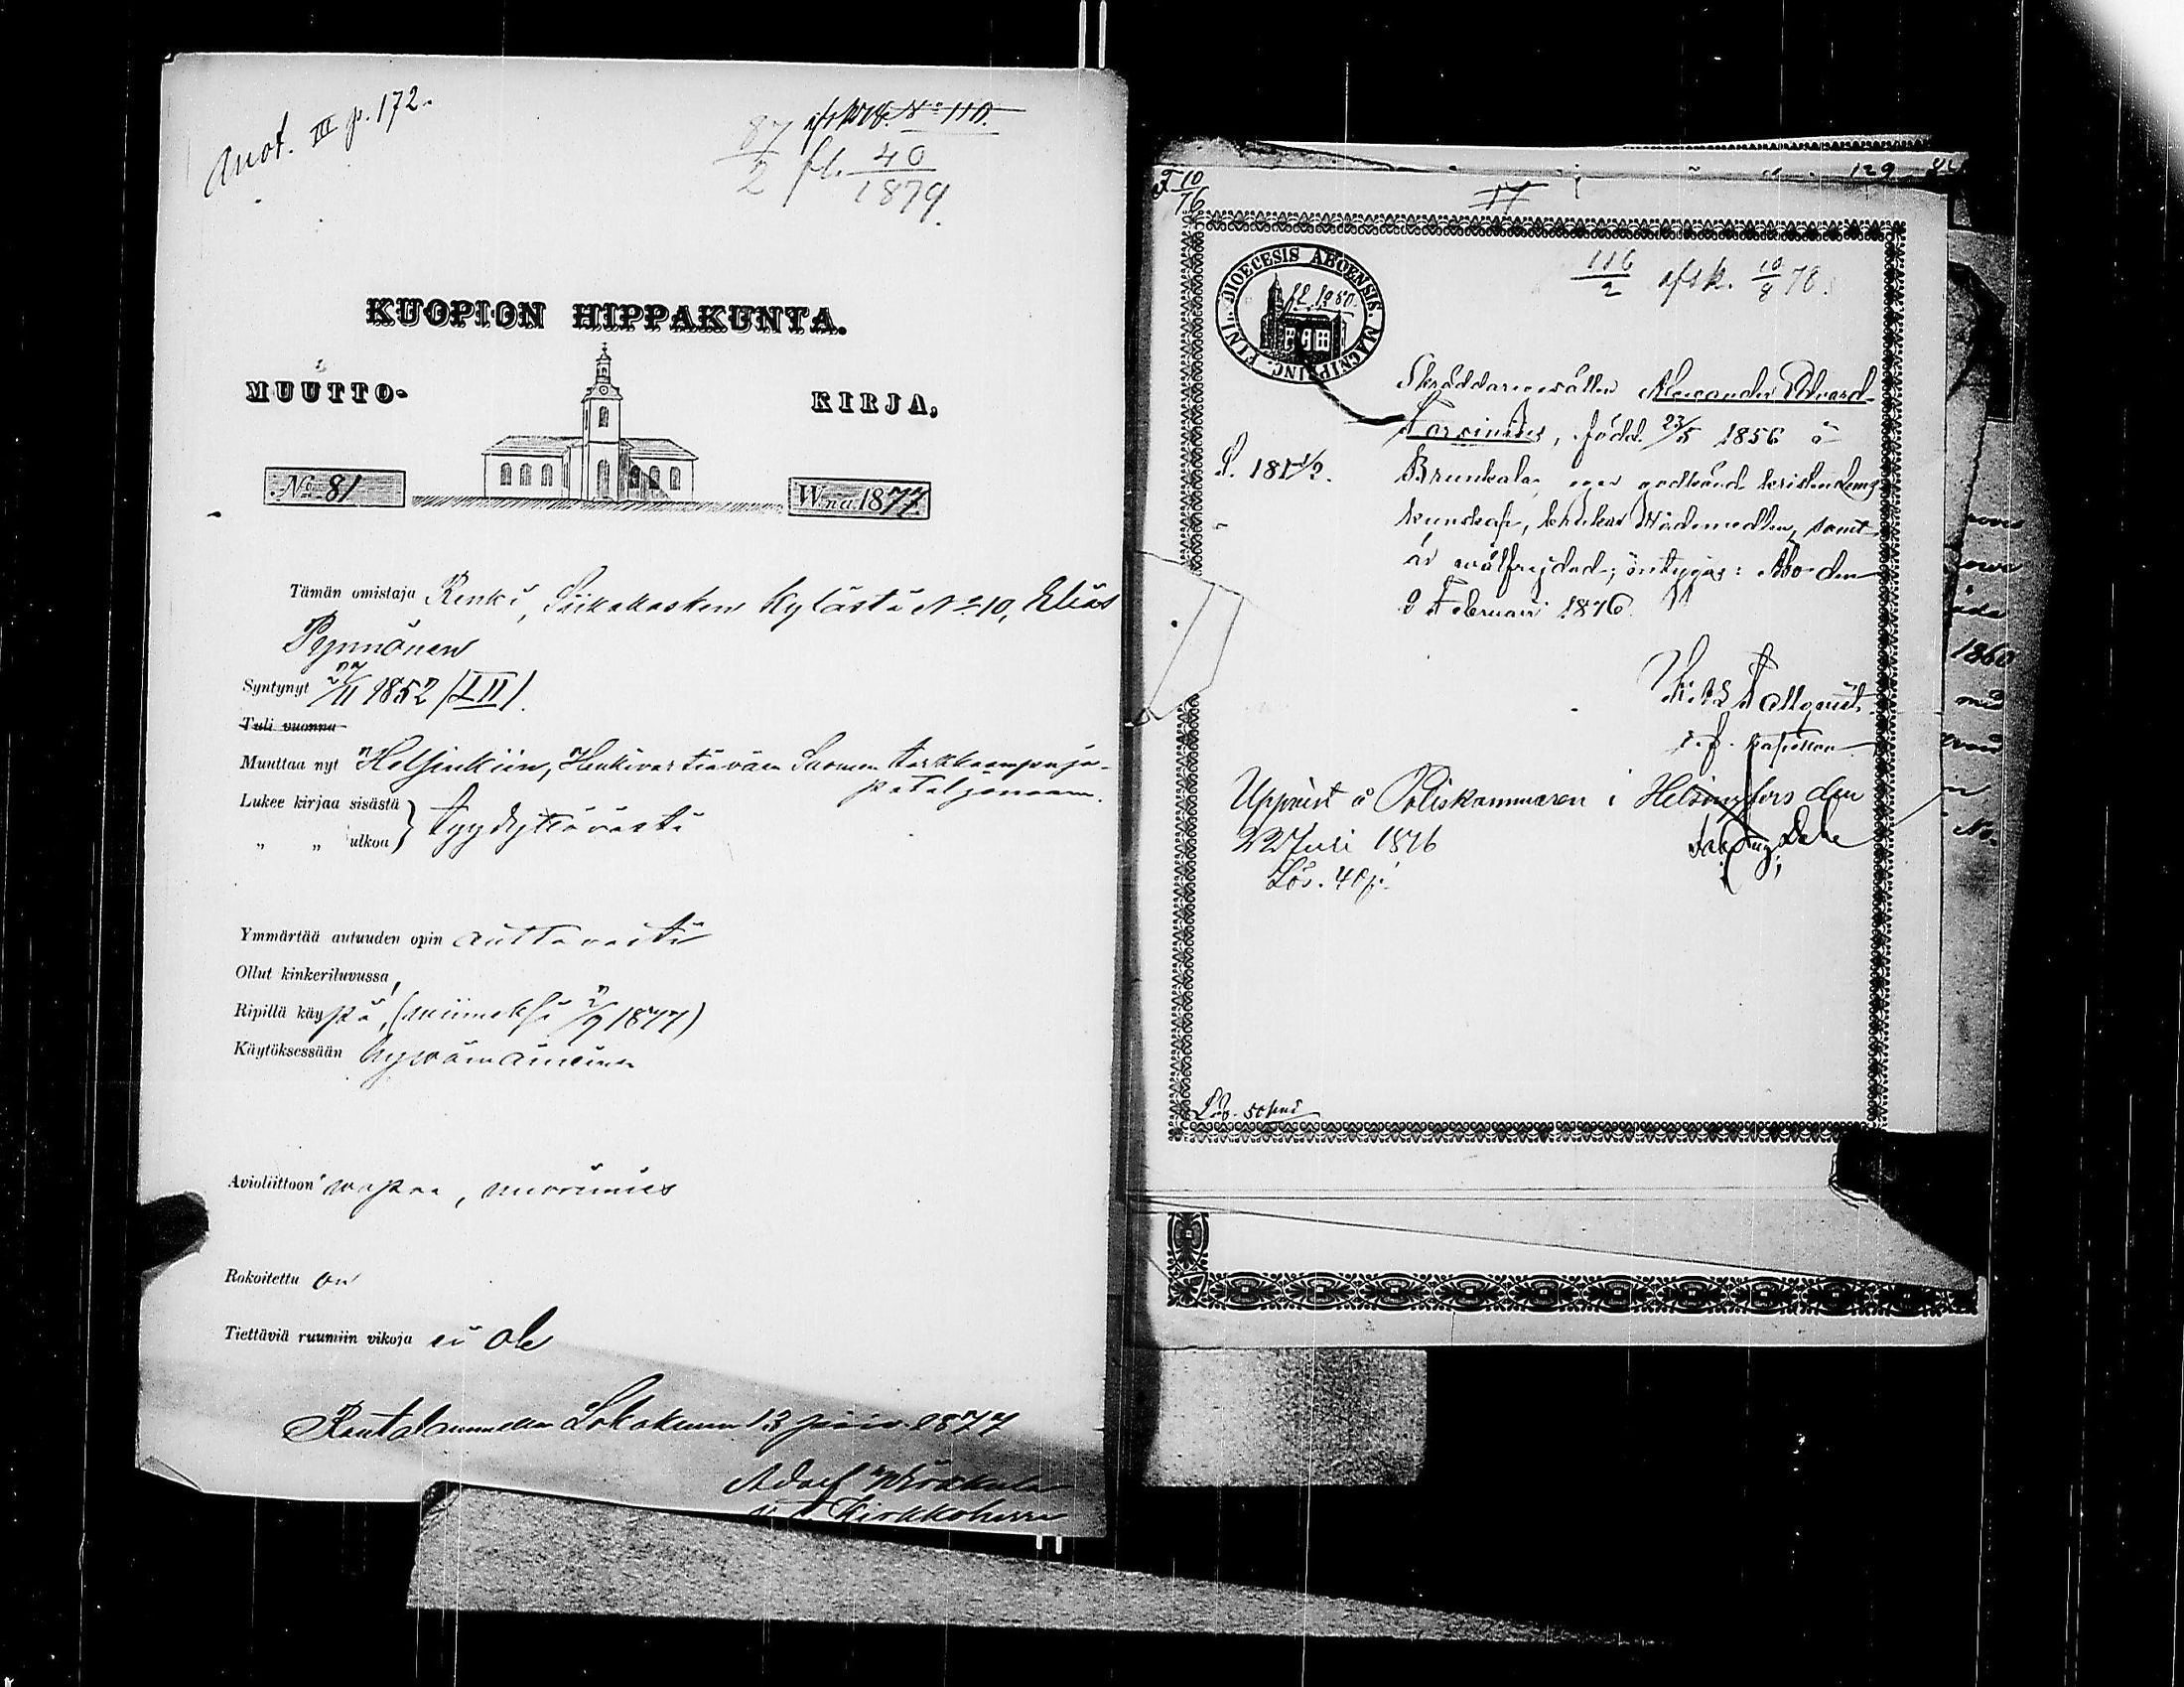 Anot. III p. 172.
afskr. No 110.
87/2 fl. 40/1879.
KUOPION HIPPAKUNTA.
MUUTTO-
KIRJA,
No 81
Wna 1877
Tämän omistaja Renki, Siikakosken kylästä No 10, Elias
Pynnönen
Syntynyt 27/11 1852 (LII).
Tuli vuonna
Muuttaa nyt Helsinkiin, Henkivartioväen Suomen tarkkampuja-
pataljonaan.
Lukee kirjaa sisästä
„ „ ulkoa } tyydyttävästi
Ymmärtää autuuden opin auttavasti
Ollut kinkeriluvussa,
Ripillä käypä, (viimeksi 2/9 1877)
Käytöksessään hyvämaineinen
Avioliittoon wapaa, nuorimies
Rokoitettu on
Tiettäviä ruumiin vikoja ei ole
Rautalammilla Lokakuun 13 päiv. 1877
Adolf
Kirkkoherra
129
F 10/76
FINL. DIOECESIS ABOENSIS. MAGNI PRINC.
fl. 1950.
116/2 afsk. 10/8 78.
Skräddaregesällen Alexander Edvard
Forsinius, född 23/5 1856 i
S. 181 1/2.
Brunkala, eger godkänd kristendoms
kunskap, brukar Nådemedlen, samt
är wälfrejdad; intygas: Åbo den
9 Februari 1876.
Tallqvist.
v. f. kapellan
Uppvist å Poliskammaren i Helsingfors den
22 Juli 1876
Lös. 40 p.
Lös. 50 pni
1860
No.